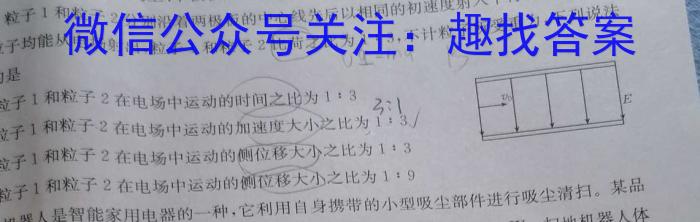 粒子1和粒子2分别沿着两极板的中心线先后以相同的初速度射入
微信公众号关注：趣找答案
粒子均能从 不计粒 下列说法
的是
粒子1和粒子2在电场中运动的时间之比为1:3
3:1
粒子1和粒子2在电场中运动的加速度大小之比为1:3
粒子1和粒子2在电场中运动的侧位移大小之比为1:3
粒子1和粒子2在电场中运动的侧位移大小之比为1:9
v₀
E
机器人是智能家用电器的一种,它利用自身携带的小型吸尘部件进行吸尘清扫。某品
扫地机器人体